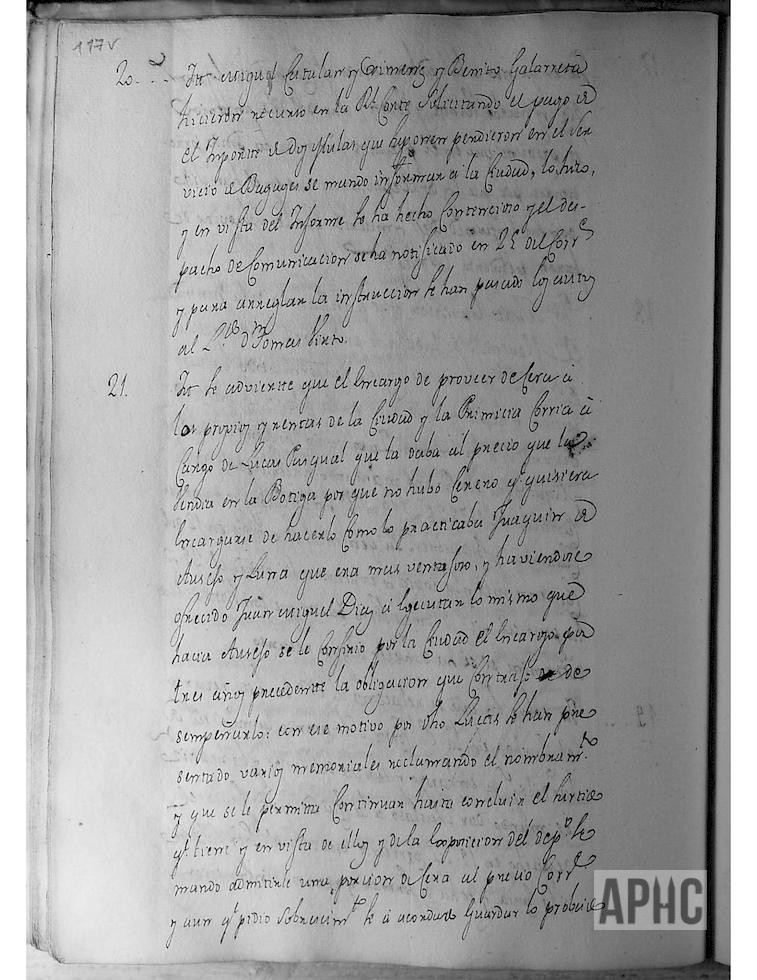 117v
20. Itt Miguel Catalan y Ximenez y Benito Galarreta
hicieron recurso en la Rl. Corte Solicitando el pago de
el Importe de dos Mulas que suponen perdieron en el Ser
vicio de Bagages se mando informar a la Ciudad, lo hizo,
y en vista del Informe se ha hecho Contencioso y el des-
pacho de Comunicacion se ha notificado en 25 del Corre
y para arreglar la instruccion se han pasado los autos
al L.do D.n Tomas Pinto.
21. Itt Se advierte que el Encargo de proveer de Cera a
los propios y rentas de la Ciudad y la Primicia Corria a
Cargo de Lucas Pasqual que la daba al precio que la
Vendia en la Botiga por que no hubo Cerero q.e quisiera
Encargarse de hacerlo Como lo practicaba Juaquin de
Aureso y Luna que era mas ventajoso, y haviendose
ofrecido Juan Miguel Diaz a egecutar lo mismo que
hacia Aureso se le Confirio por la Ciudad el Encargo por
tres años precedente la obligacion que Contrajo de de
sempeñarlo: con ese motivo por dho Lucas se han pre
sentado varios memoriales reclamando el nombram.to
y que se le permita Continuar hasta concluir el surtido
q.e tiene y en vista de ellos y de la exposicion del dep.o se
mando admitirle una porcion de Cera al precio Corr.e
y aun q.e pidio Sobreseim.to se a acordado Guardar lo probeido
APHC